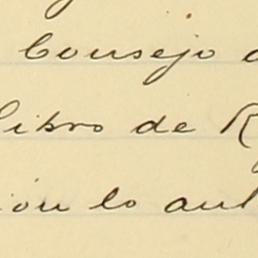 Consejo
libro de R
ión lo aut